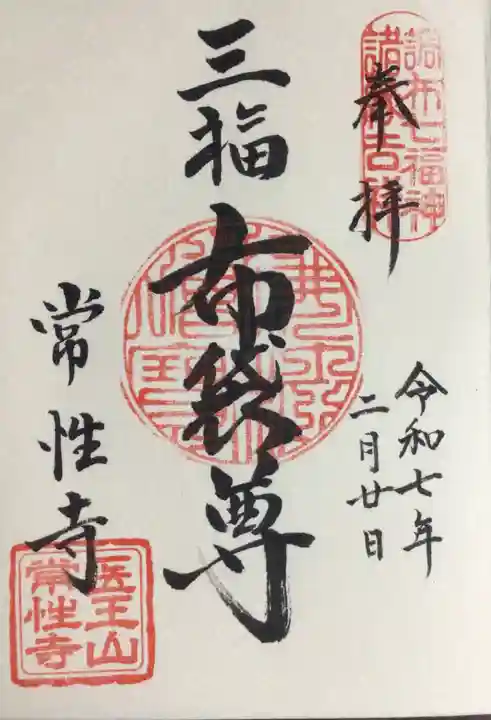 奉拝
調布七福神
諸願吉祥
令和七年
二月廿日
三福
布袋尊
常性寺
医王山
常性寺